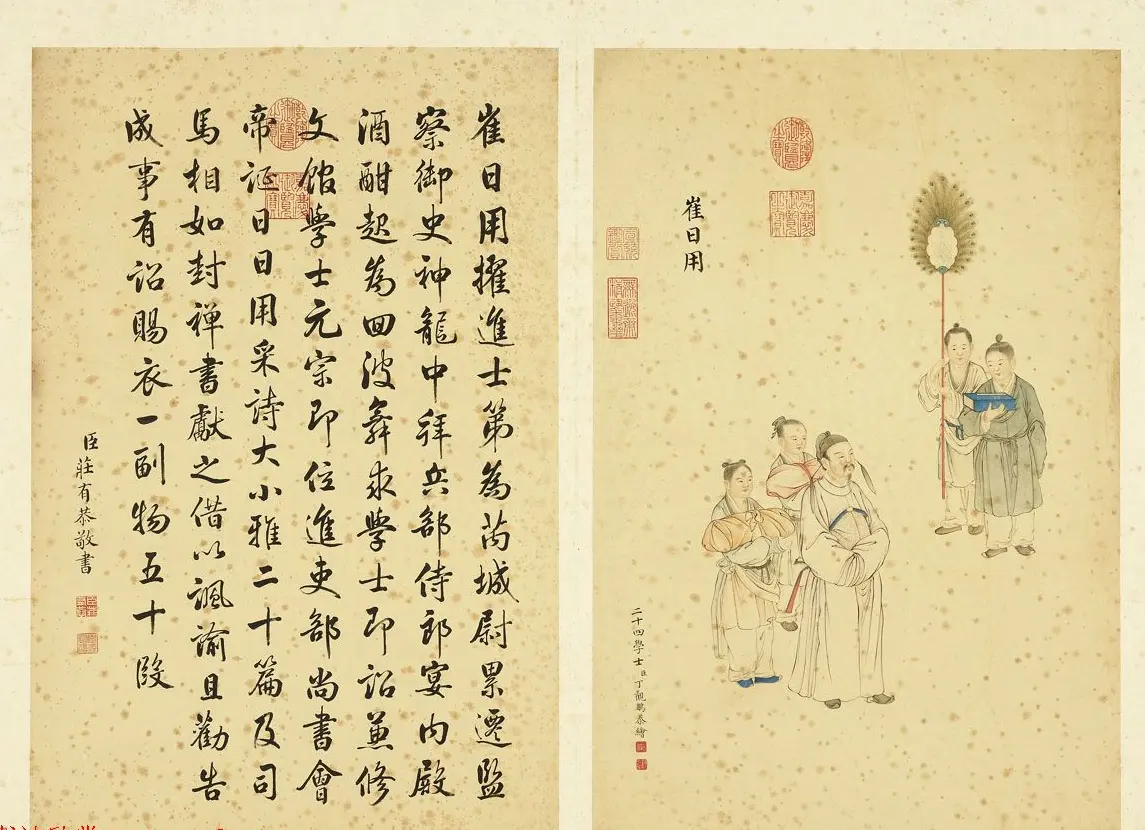 崔日用
二十四學士臣丁觀鵬恭繪
崔日用擢進士第為芮城尉累遷監
察御史神龍中拜兵部侍郎宴內殿
酒酣起為回波舞求學士即詔兼修
文館學士元宗即位進吏部尚書會
帝誕日日用采詩大小雅二十篇及司
馬相如封禪書獻之借以諷諭且勸告
成事有詔賜衣一副物五十段
臣莊有恭敬書